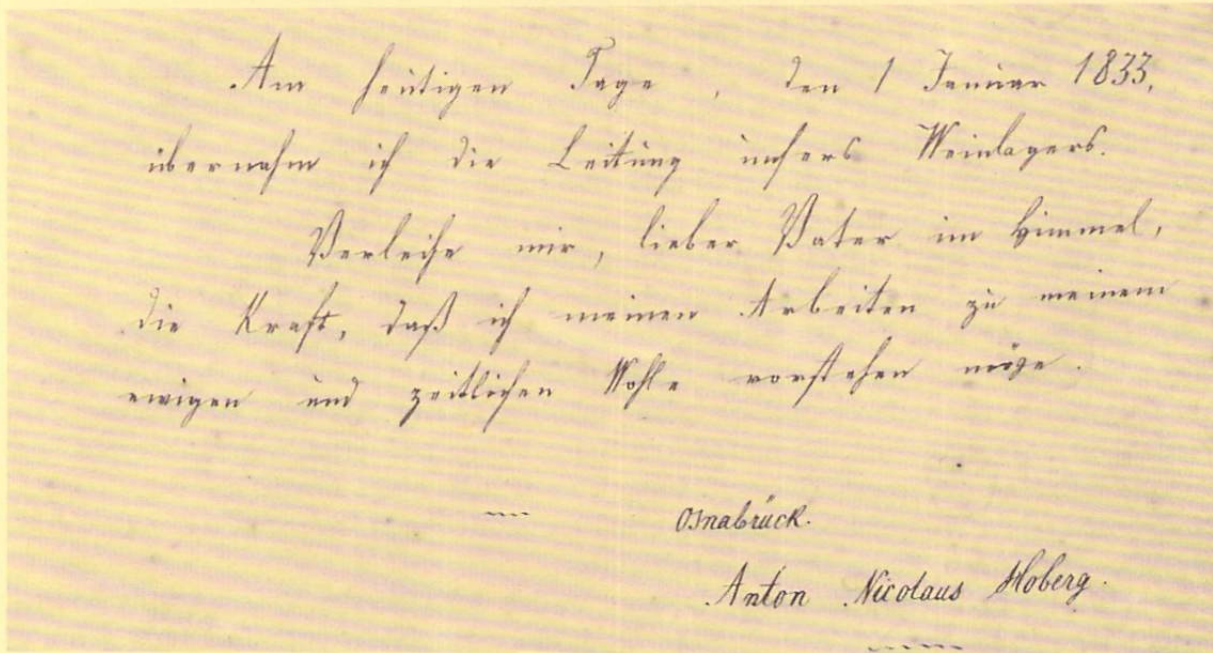 Am heutigen Tage, den 1 Januar 1833,
übernahm ich die Leitung unsers Weinlagers.
Verleihe mir, lieber Vater im Himmel,
die Kraft, daß ich meinen Arbeiten zu meinem
ewigen und zeitlichen Wohle vorstehen möge.
Osnabrück.
Anton Nicolaus Hoberg.